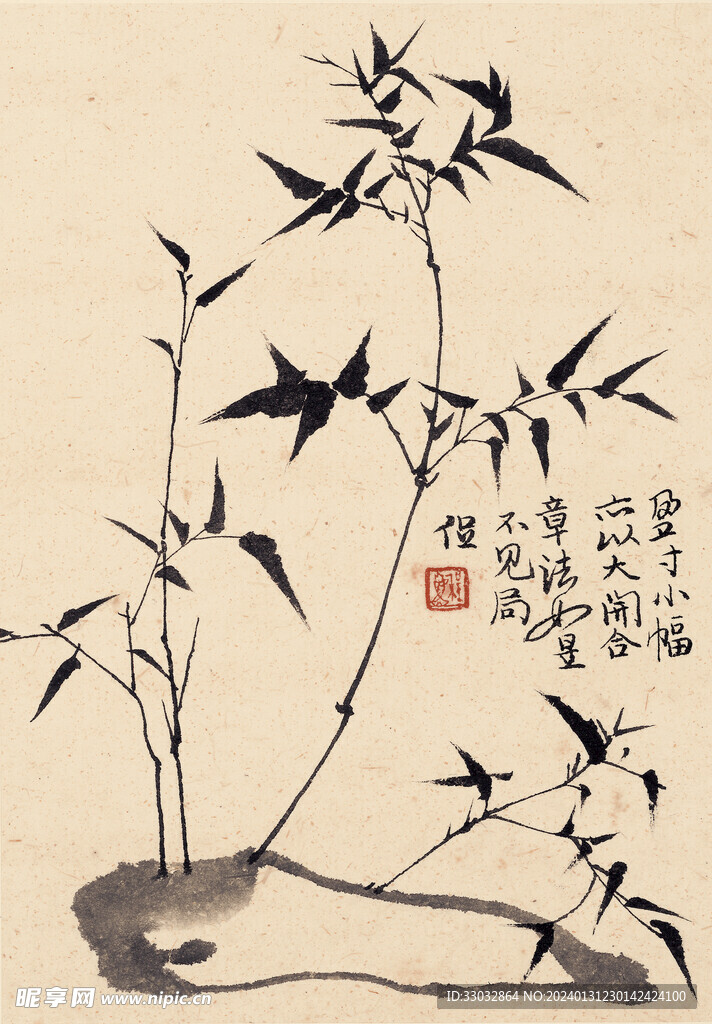 盈寸小幅
亦以大開合
章法如是
不见局
促
昵享网 www.nipic.cn
ID:33032864 NO:20240131230142424100